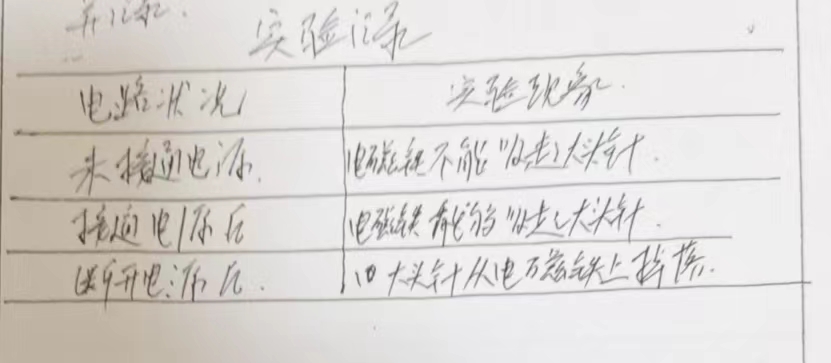 并记录.
实验记录
电路状况 实验现象.
未接通电源. 电磁铁不能吸起大头针.
接通电源后 电磁铁能够吸起大头针.
断开电源后. 大头针从电磁铁上掉落.